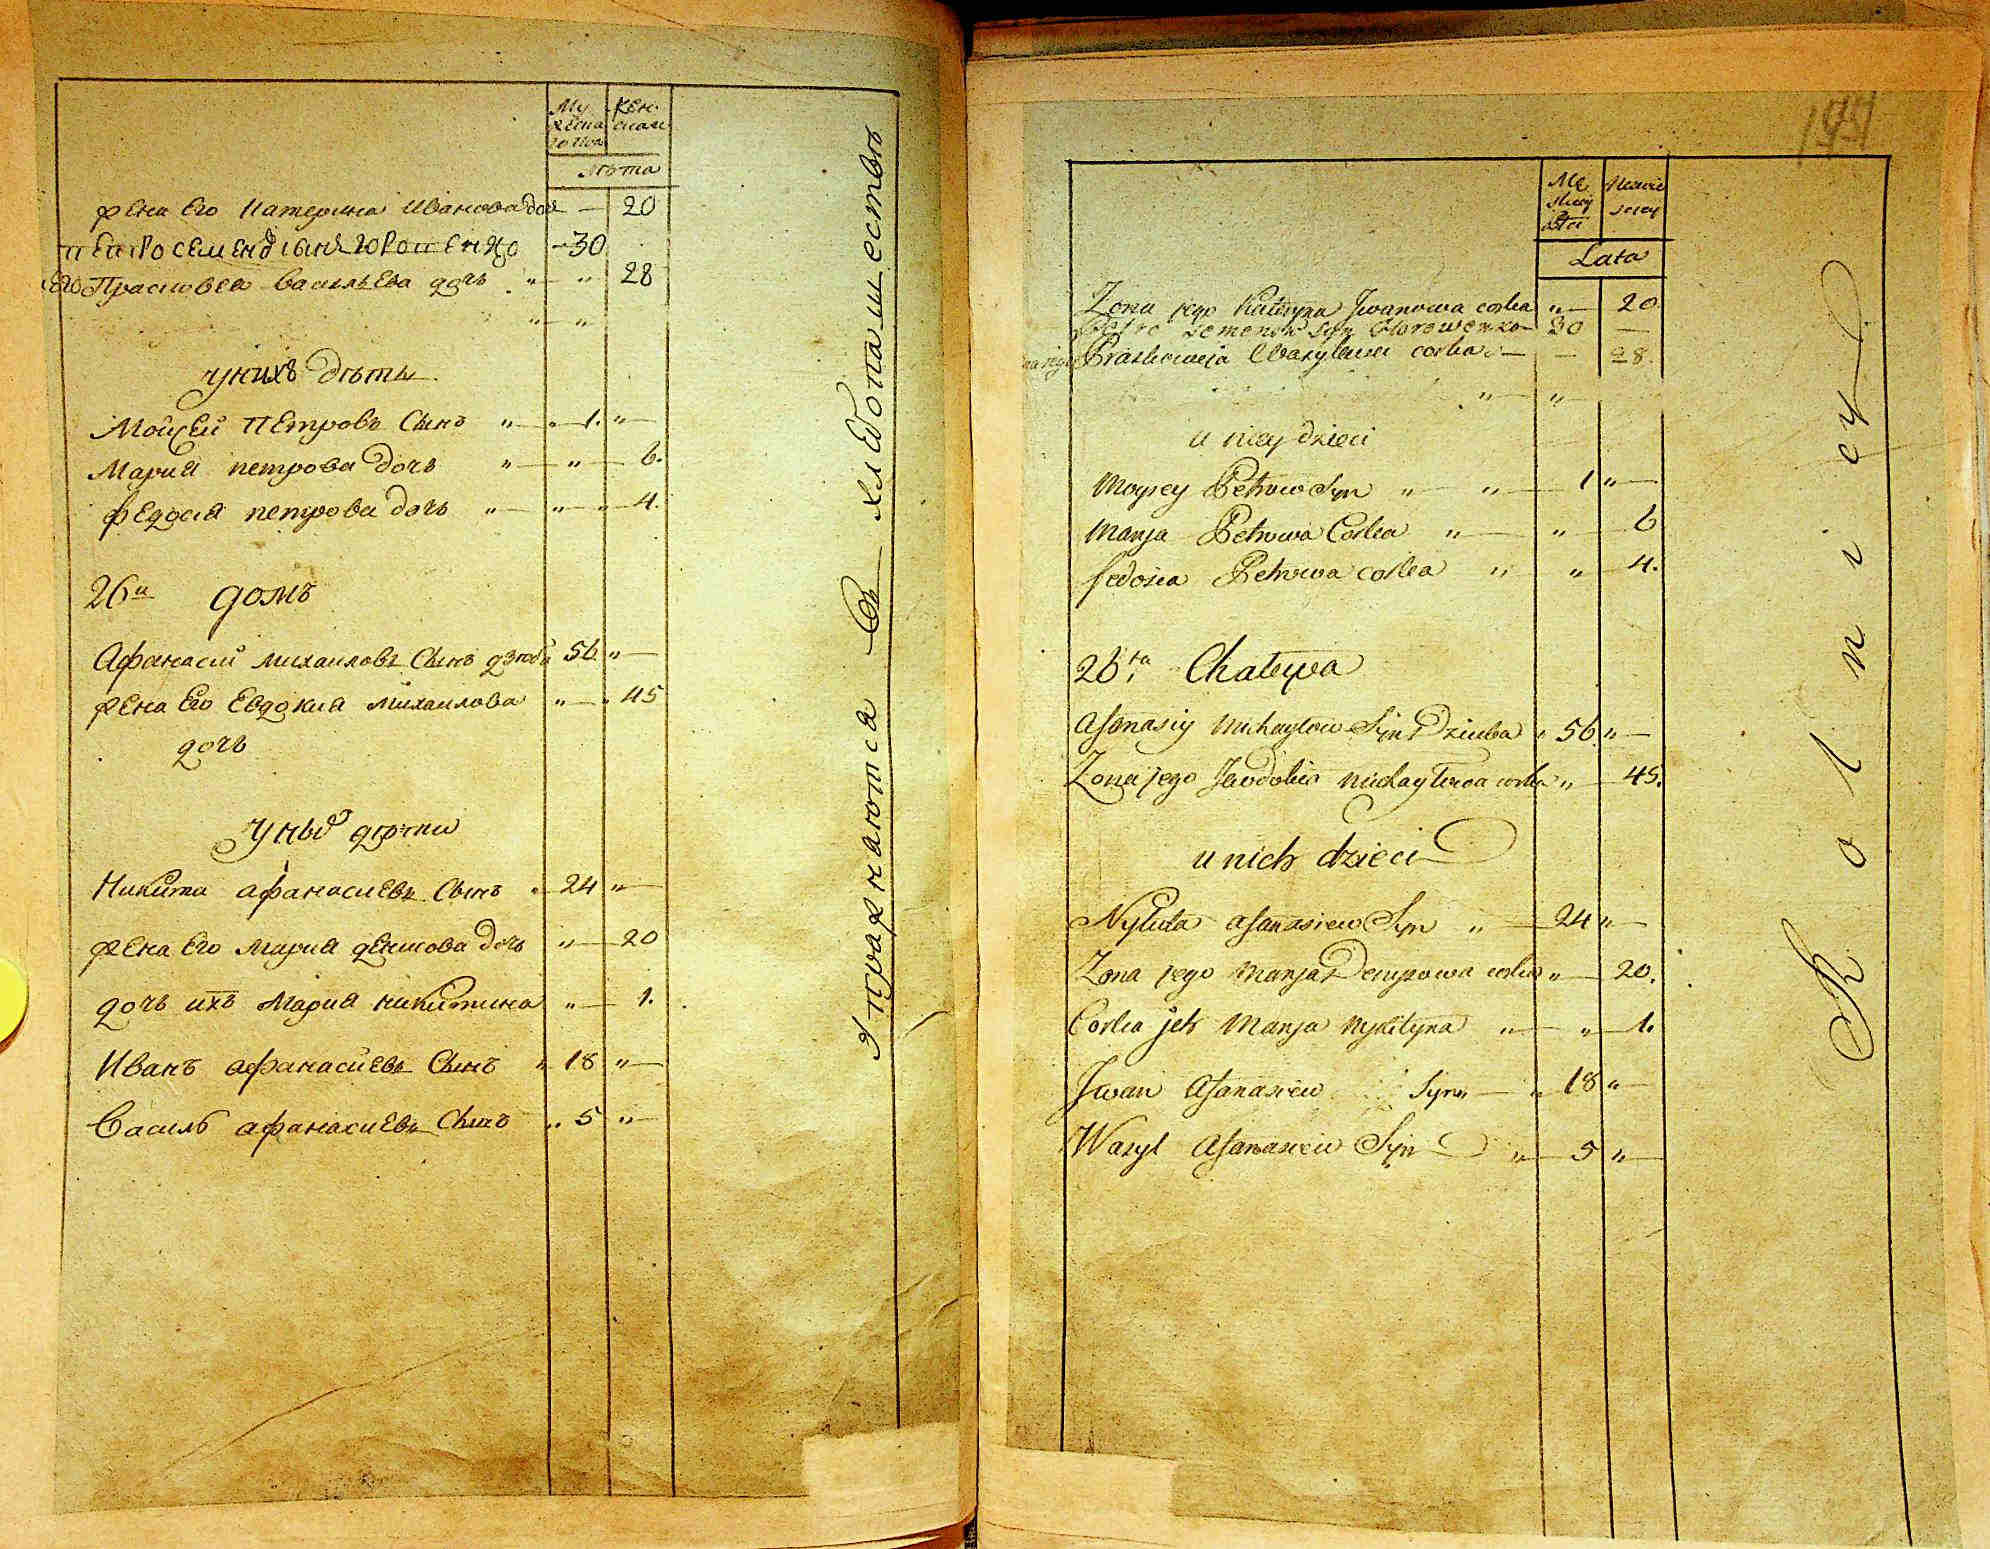 Му
жеска
го пола
Жен
скаго
Лѣта
жена Его Катерина Иванова дочь — 20
Петро Семеновъ сынъ — 30
Его Прасковея Васильева дочь „ „ 28
„ „
у нихъ дѣти
Мойсей Петровъ Сынъ „ „ 1. „
Мария петрова Дочь „ „ 6.
федосия петрова дочь „ „ „ 4.
26й домъ
Афанасий михаиловъ Сынъ дзюба 56 „
жена Его Евдокия михаилова „ „ 45
дочь
у ныхъ дѣти
Никита афанасиевъ Сынъ „ 24 „
жена Его Мария демкова дочь „ 20
дочь ихъ Мария никитина „ 1.
Иванъ афанасиевъ Сынъ „ 18 „
Василь афанасиевъ Сынъ „ 5 „
Упражнаются Въ хлѣбопашествѣ
191
Mę
skiey
płci
Lata
Zona jego Kateryna Jwanowa corka „ 20.
Petro Semenow Syn 30 —
Praskoweja Wasylewa corka — 28.
„ „
u niey dzieci
Moysey Petrow Syn „ „ 1 „
Marya Petrowa Corka „ „ 6
fedosia Petrowa corka „ „ 4.
26.ta Chatupa
Afanasiy Michaylow Syn Dziuba „ 56 „
Zona jego Jewdokia Michaylowa corka „ 45.
u nich dzieci
Nykita Afanasiew Syn „ 24 „
Zona jego Marya Demkowa corka „ 20.
Corka jch Marya Nykityna „ „ 1.
Jwan Afanasiew Syn „ „ 18 „
Wasyl Afanasiew Syn „ 5 „
Rolnicy